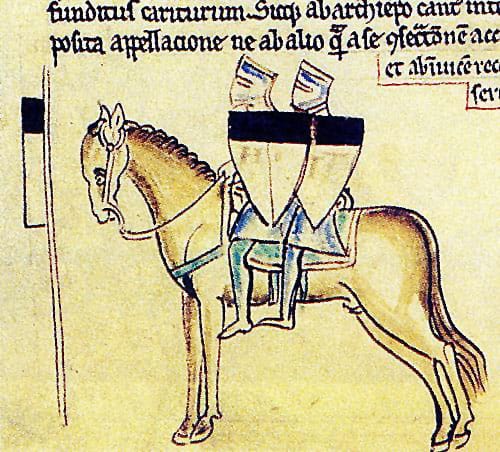 funditus cariturum. Sicq; ab archiepo cant int
posita appellacione ne ab alio q̄ a se acc
et ab inuicē rec
ser